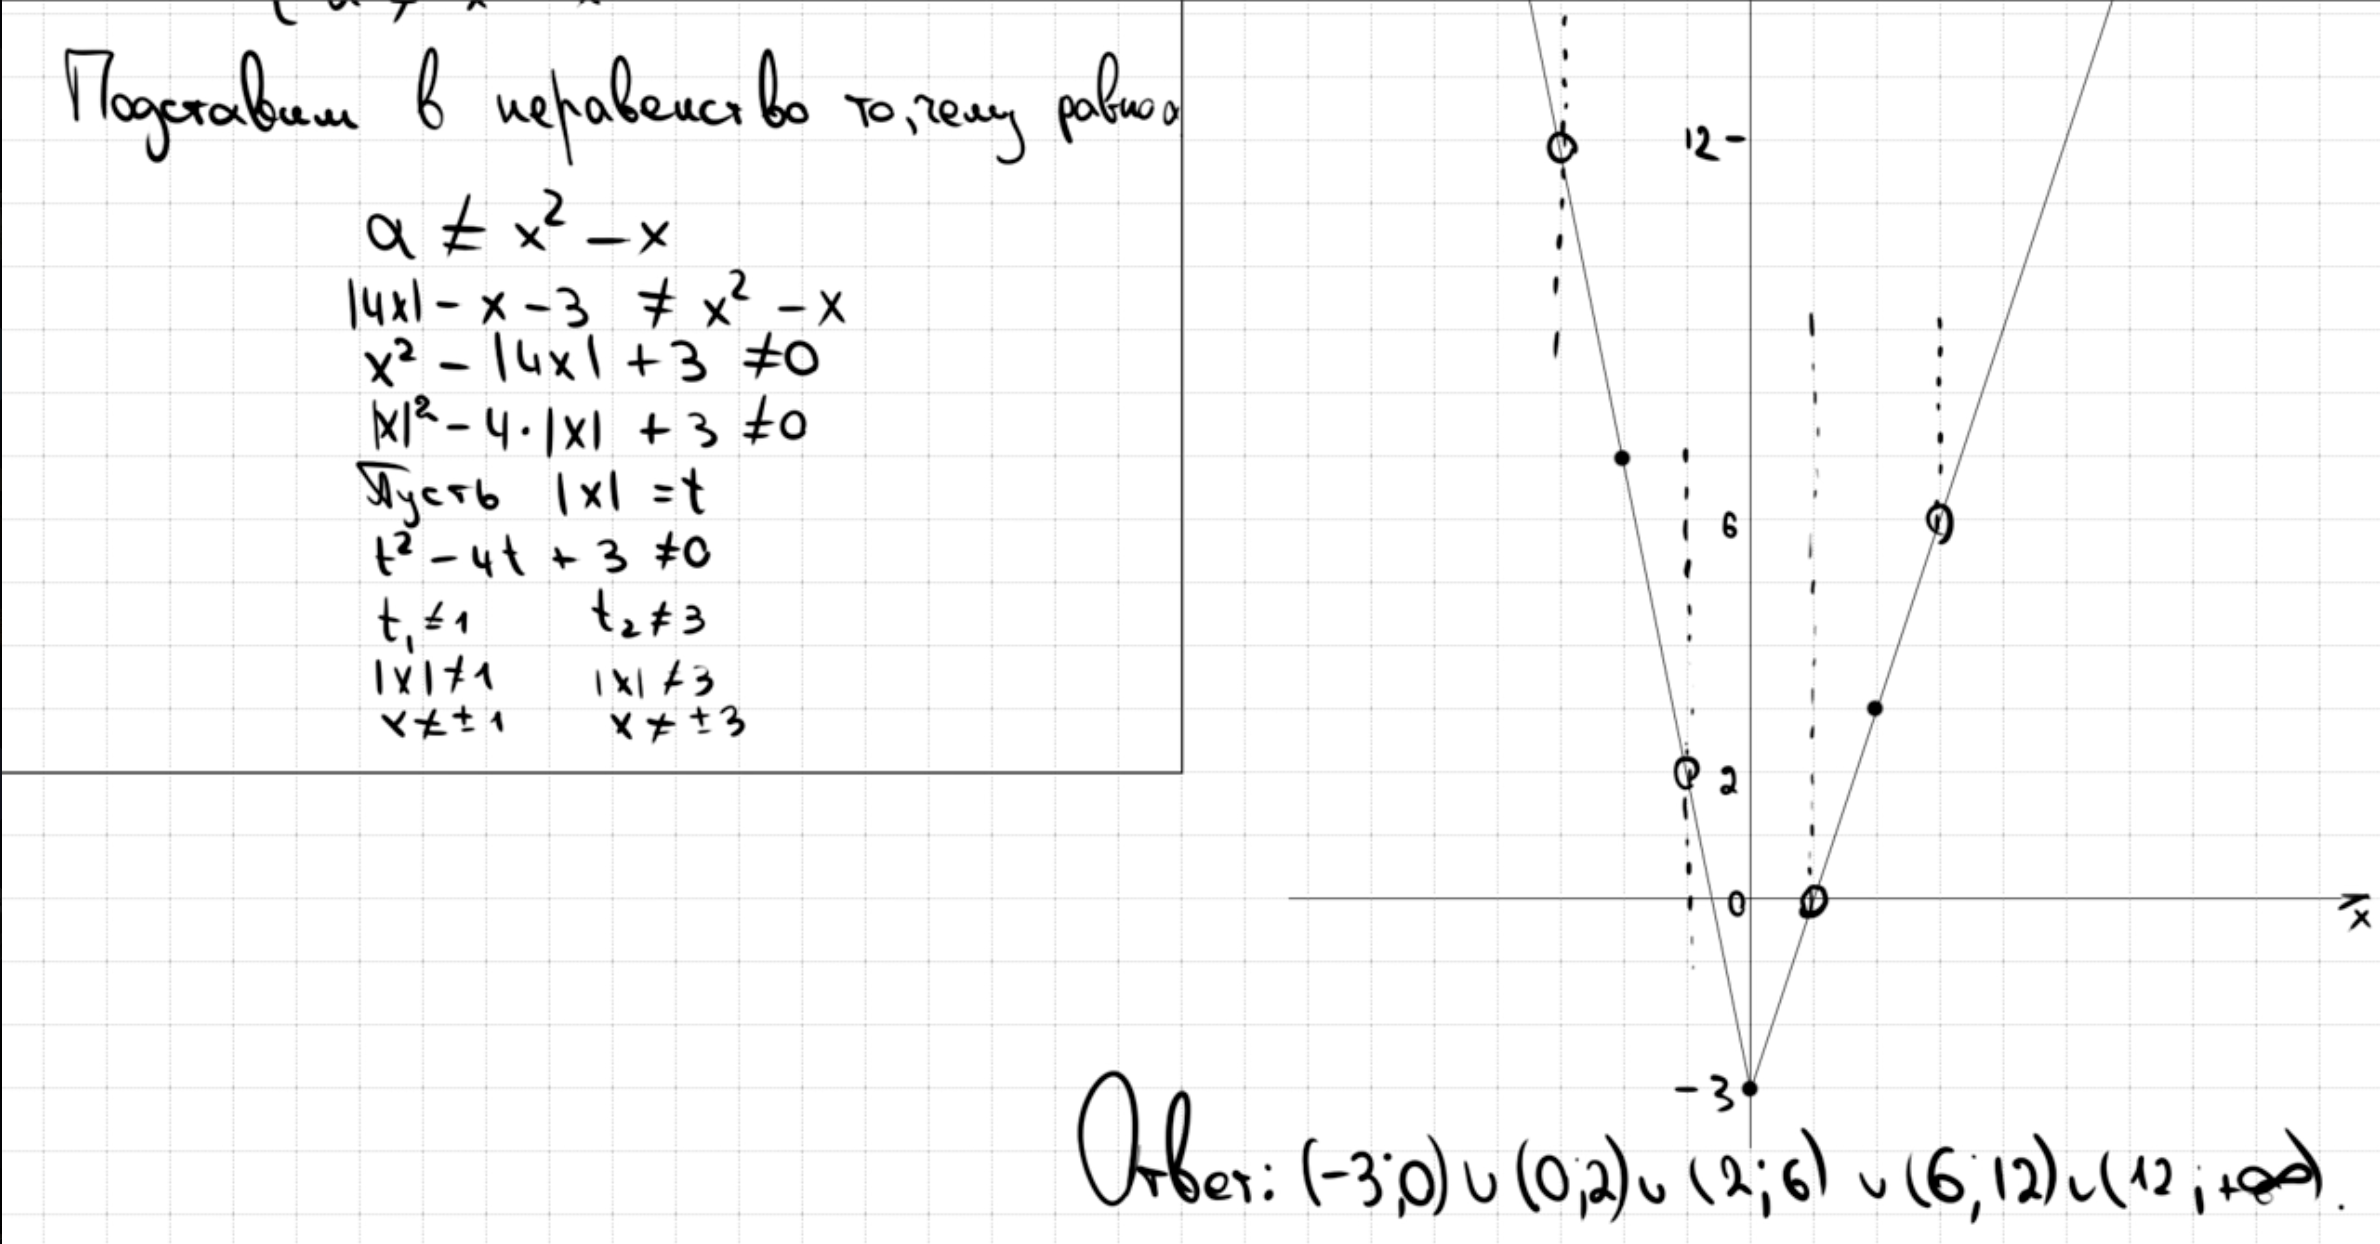 Подставим в неравенство то, чему равно a
a ≠ x² - x
|4x| - x - 3 ≠ x² - x
x² - |4x| + 3 ≠ 0
|x|² - 4·|x| + 3 ≠ 0
Пусть |x| = t
t² - 4t + 3 ≠ 0
t₁ ≠ 1 t₂ ≠ 3
|x| ≠ 1 |x| ≠ 3
x ≠ ± 1 x ≠ ± 3
12
6
2
0
x
-3
Ответ: (-3;0) ∪ (0;2) ∪ (2;6) ∪ (6;12) ∪ (12;+∞).